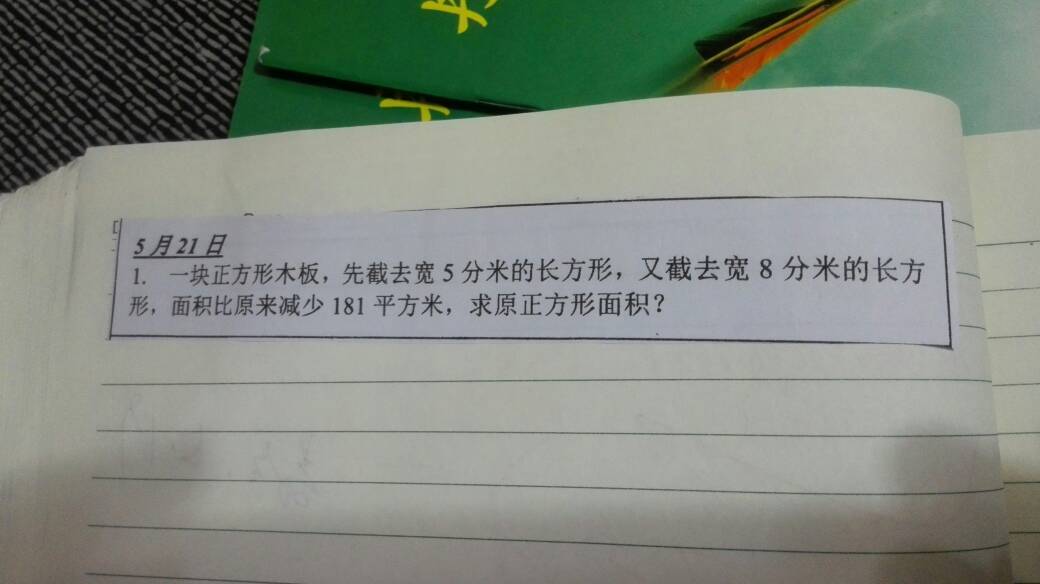 5月21日
1. 一块正方形木板，先截去宽 5 分米的长方形，又截去宽 8 分米的长方
形，面积比原来减少 181 平方米，求原正方形面积？